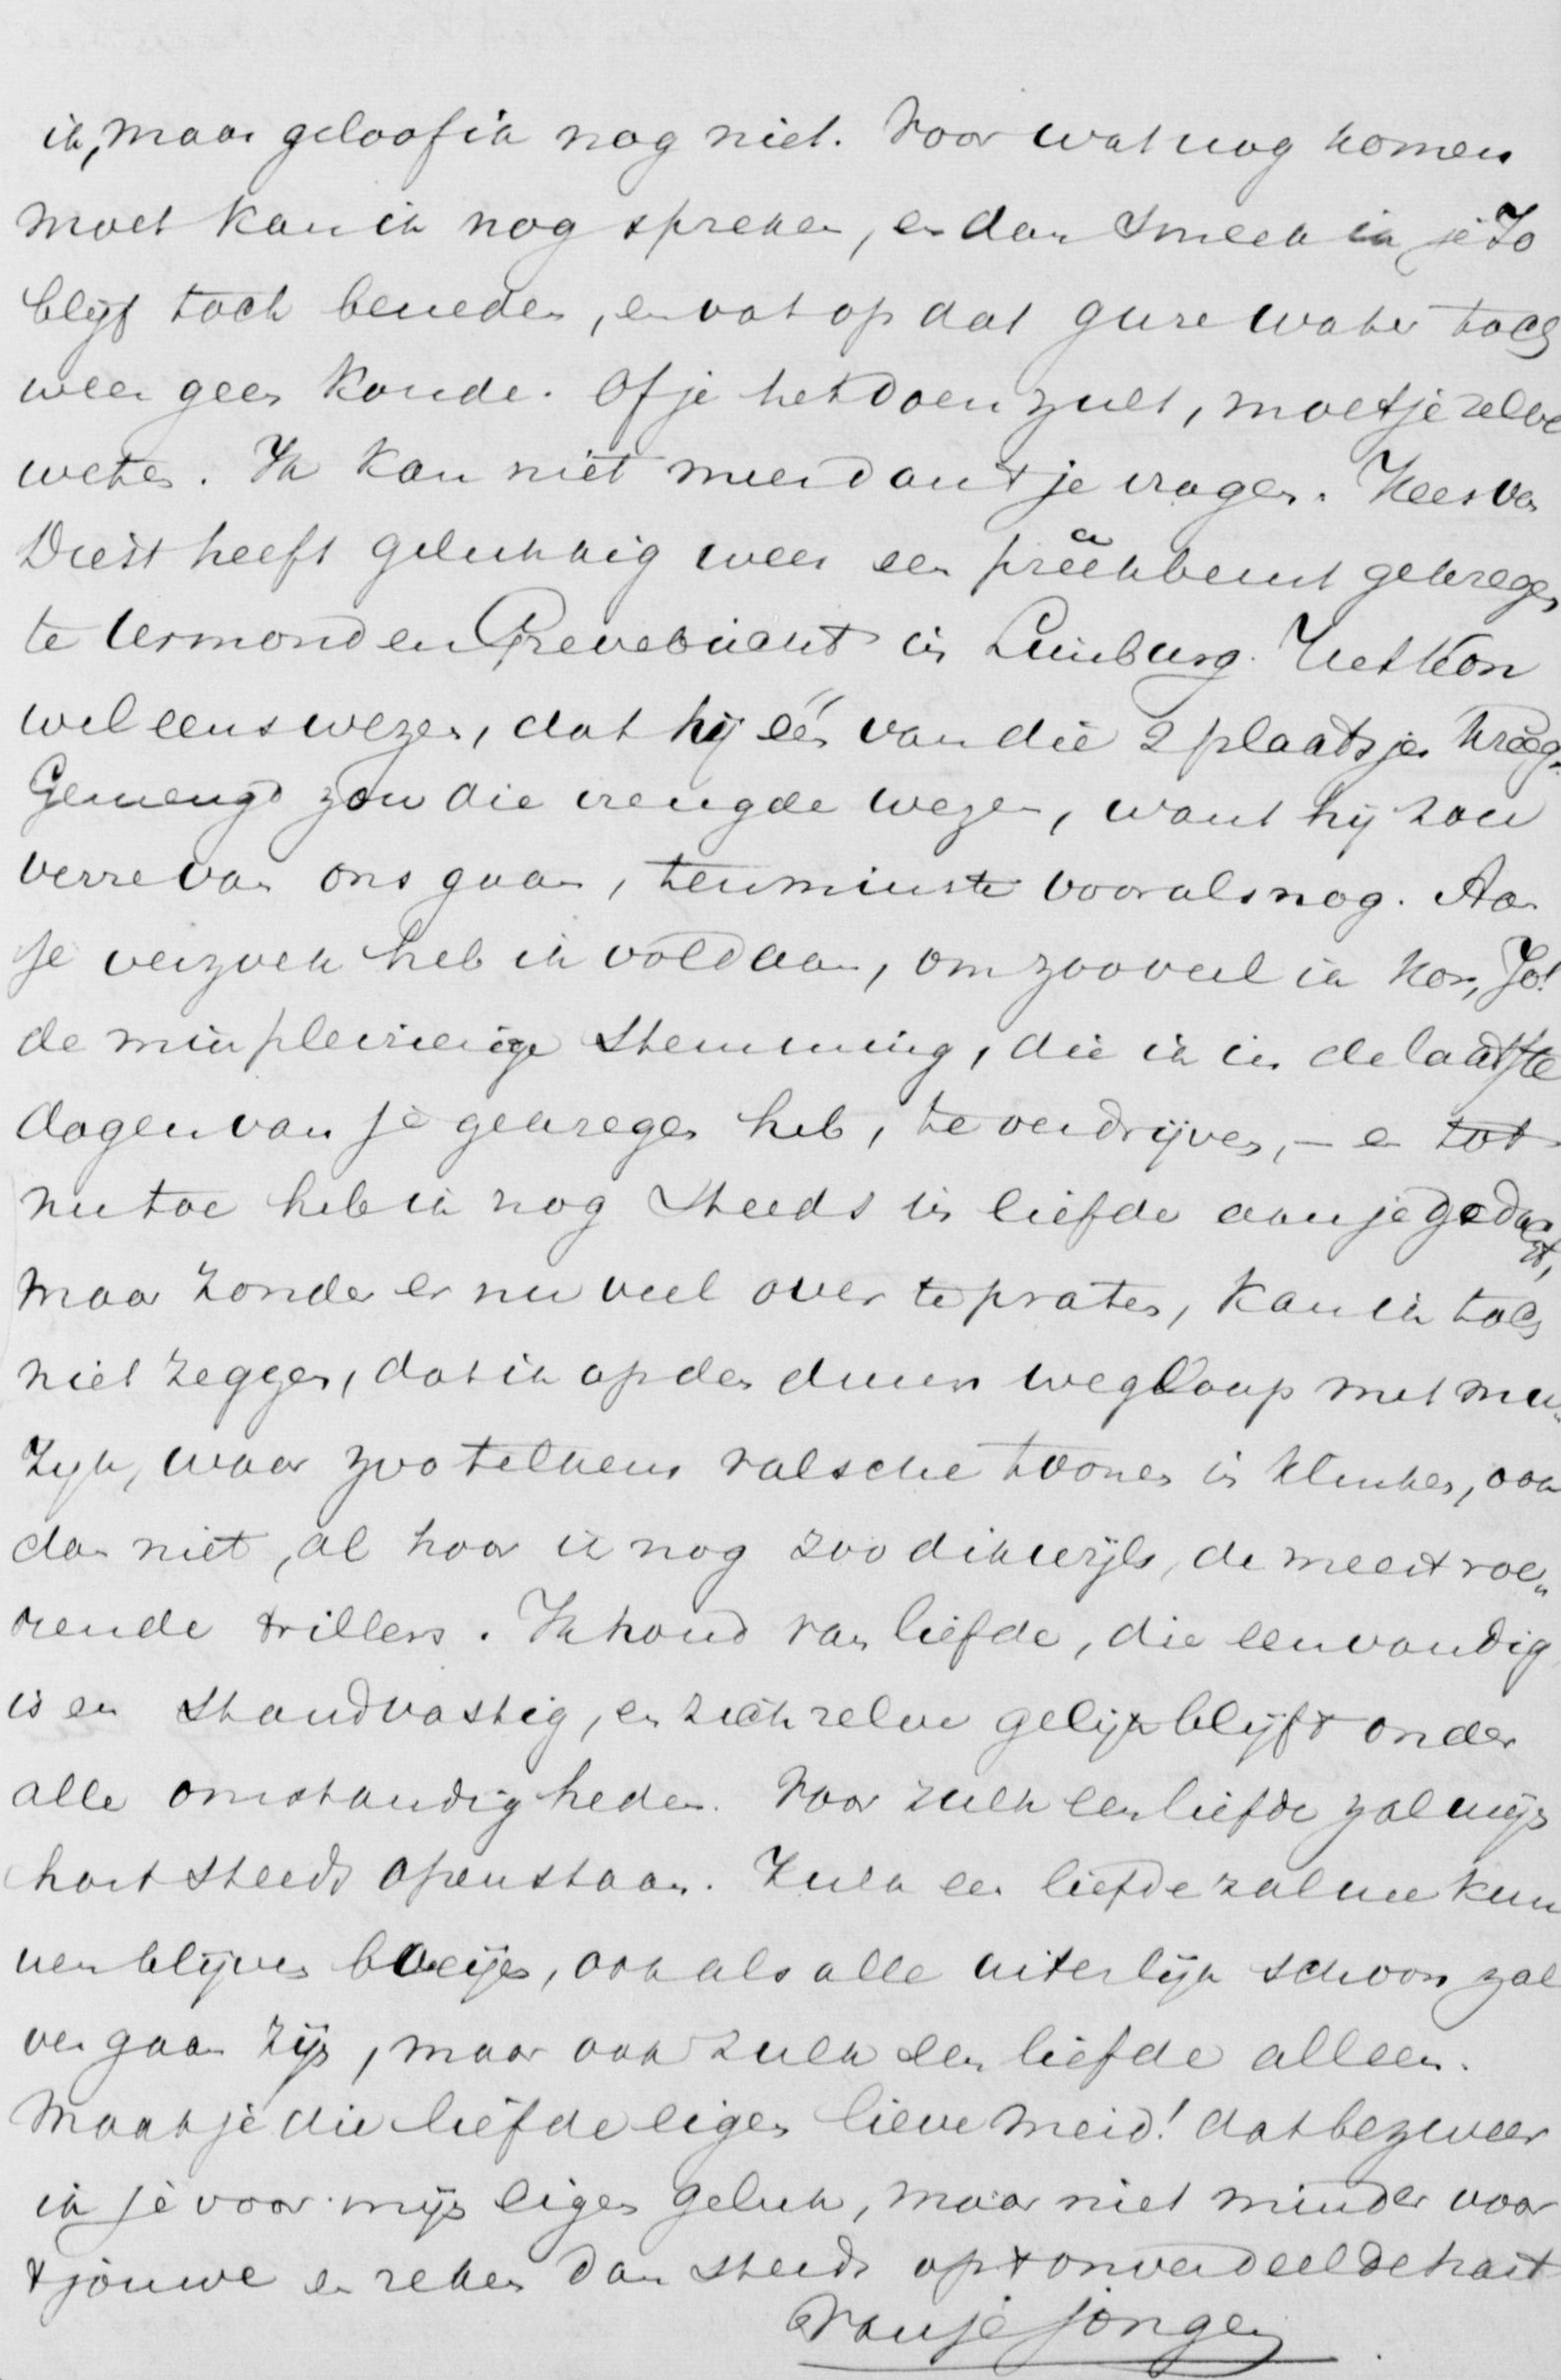 ik, maar geloof ik nog niet. Voor wat nog komen
moet kan ik nog spreken, en dan smeek ik je Jo
blijf toch beneden, en vat op dat gure water toch
weer geen koude. Of je het doen zult, moet je zelve
weten. Ik kan niet meer dan 't je vragen. Kees van
Diest heeft gelukkig weer een preekbeurt gekregen
te Urmond en Grevebicht in Limburg. Het kon
wel eens wezen, dat hij één van die 2 plaatsjes kreeg.
Gemengd zou die vreugde wezen, want hij zou
verre van ons gaan, tenminste vooralsnog. Aan
je verzoek heb ik voldaan, om zooveel ik kon, Jo!
de min pleizierige stemming, die ik in de laatste
dagen van je gekregen heb, te verdrijven, – en tot
nu toe heb ik nog steeds in liefde aan je gedacht,
maar zonder er nu veel over te praten, kan ik toch
niet zeggen, dat ik op den duur wegloop met mu„
zijk, waar zoo telkens valsche toonen in klinken, ook
dan niet, al hoor ik nog zoo dikwijls, de meest roe„
rende trillers. Ik houd van liefde, die eenvoudig
is en standvastig, en zich zelve gelijk blijft onder
alle omstandigheden. Voor zulk een liefde zal mijn
hart steeds openstaan. Zulk een liefde zal me kun
nen blijven boeijen, ook als alle uiterlijk schoon zal
vergaan zijn, maar ook zulk een liefde alleen.
Maak je die liefde eigen lieve meid! dat bezweer
ik je voor mijn eigen geluk, maar niet minder voor
't jouwe en reken dan steeds op 't onverdeelde hart
van je jongen